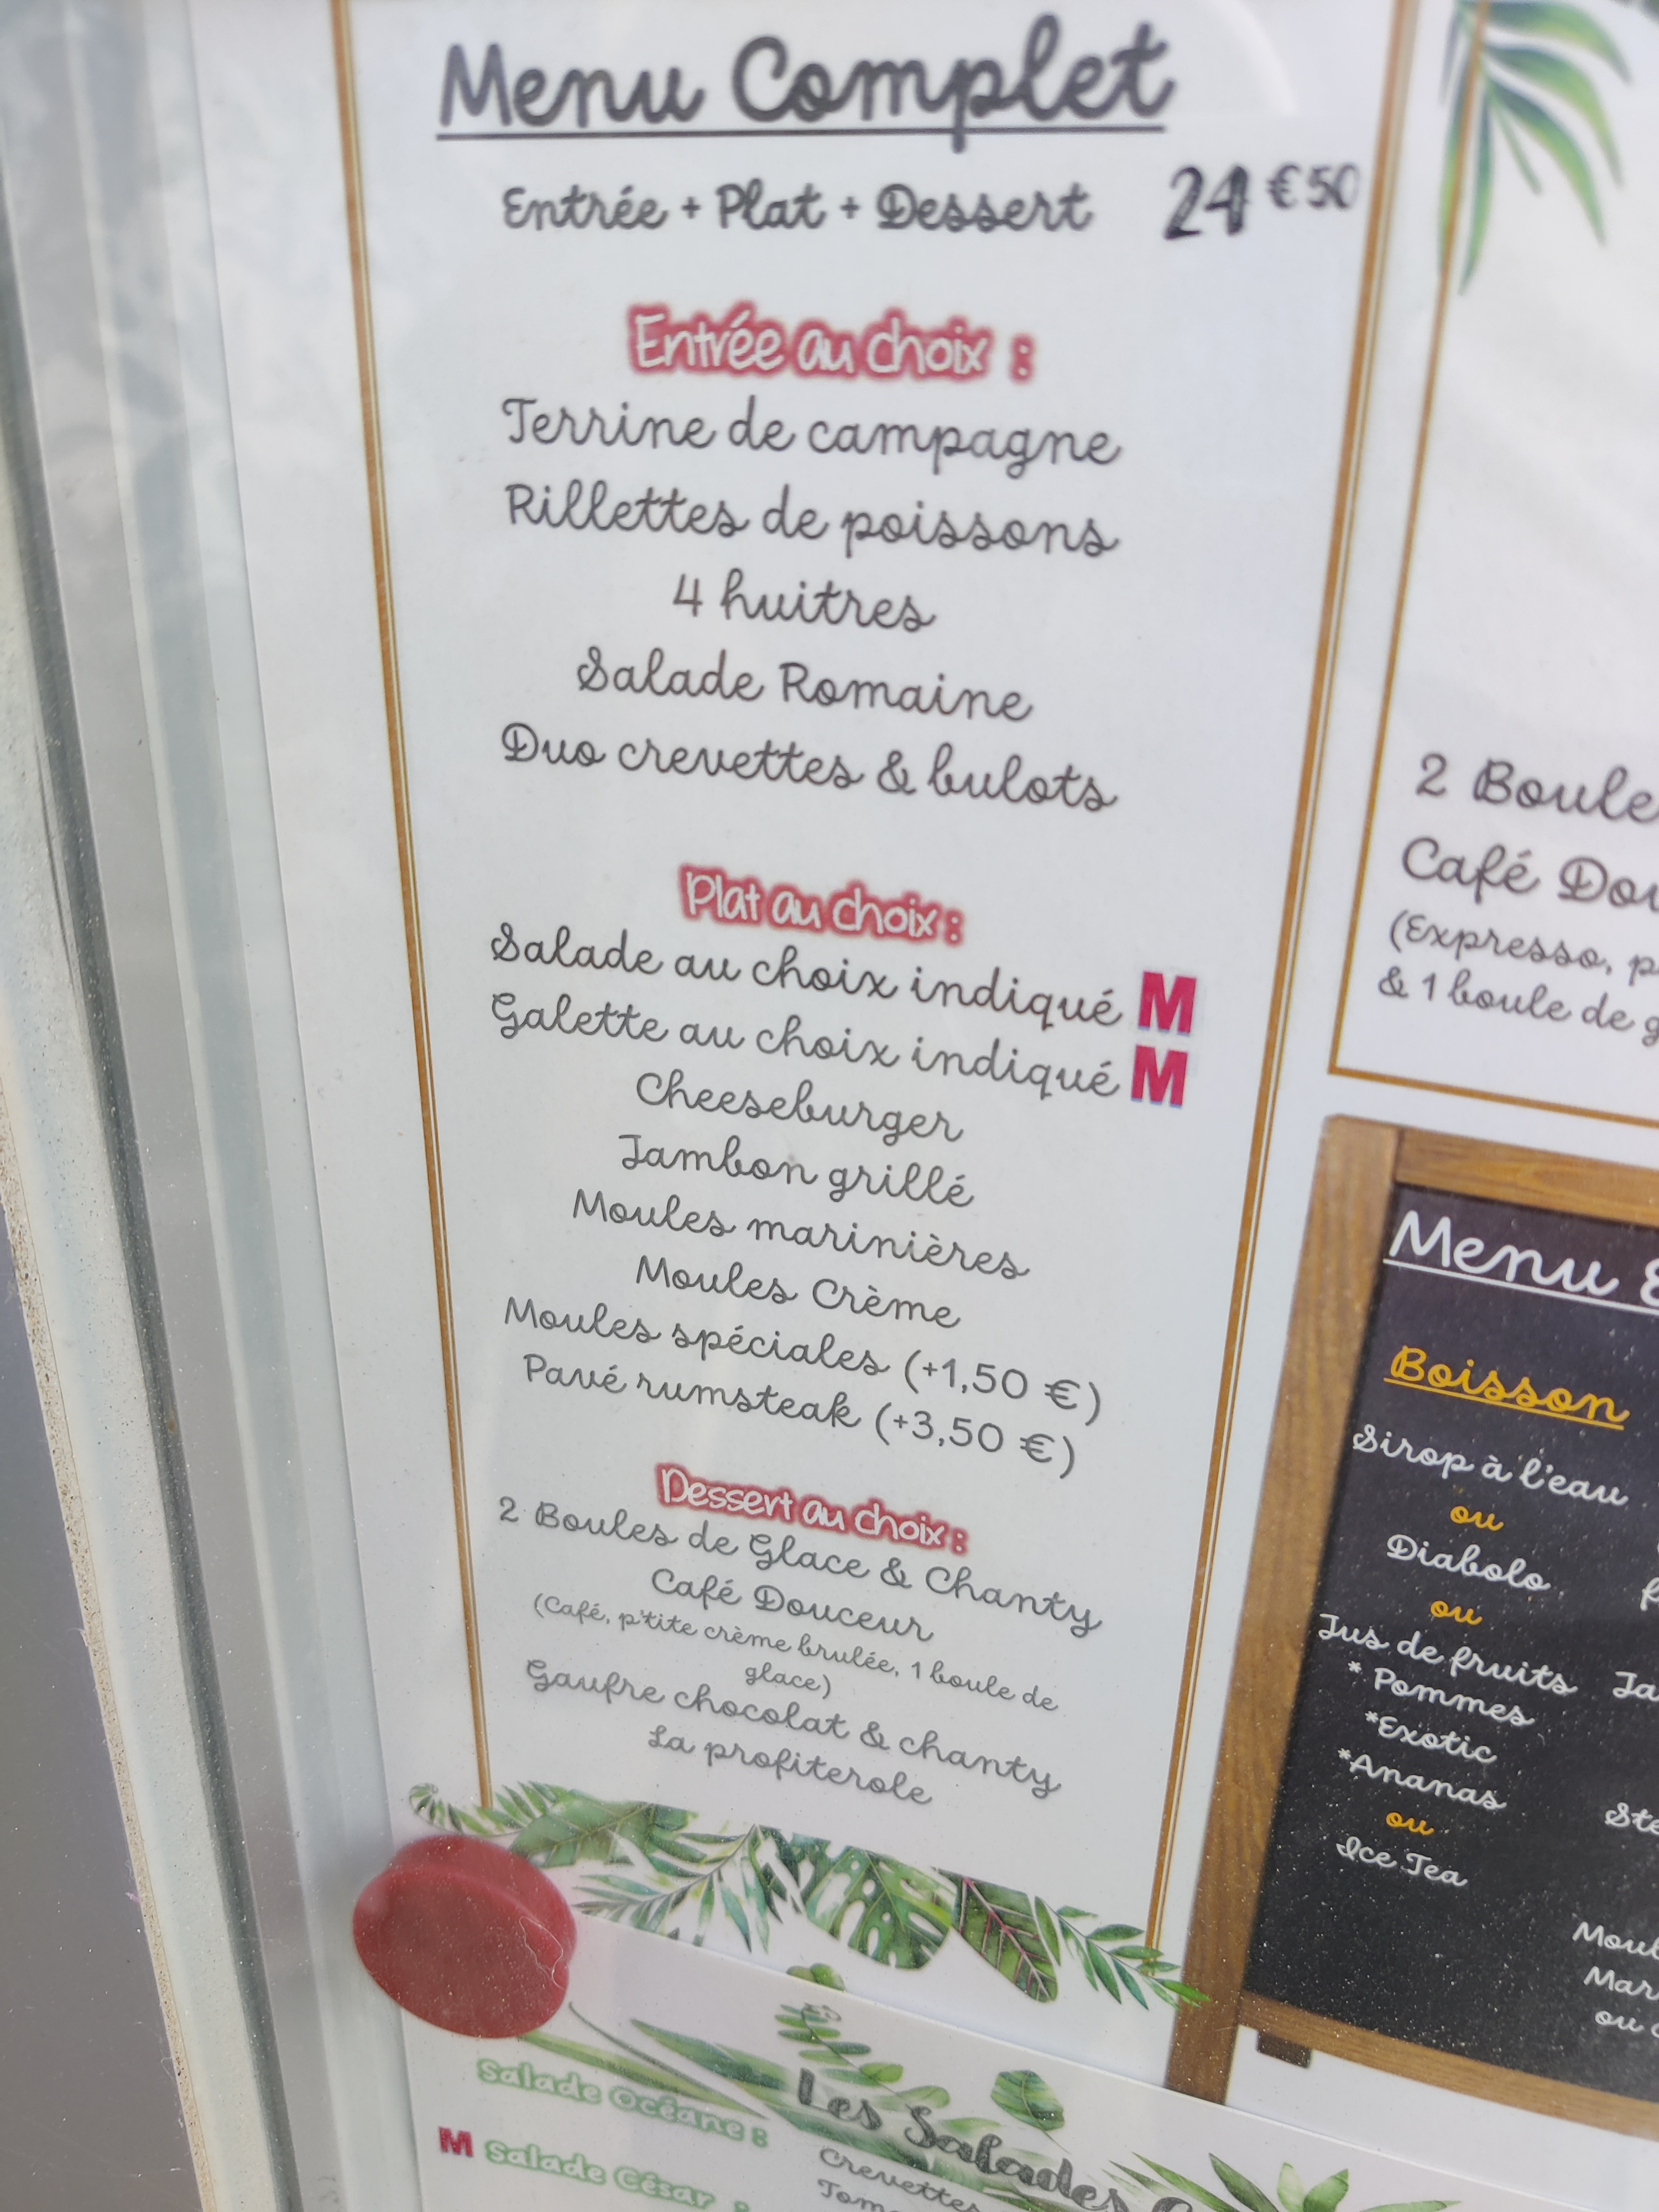 Menu Complet
Entrée + Plat + Dessert 24 €50
Entrée au choix :
Terrine de campagne
Rillettes de poissons
4 huitres
Salade Romaine
Duo crevettes & bulots
Plat au choix :
Salade au choix indiqué M
Galette au choix indiqué M
Cheeseburger
Jambon grillé
Moules marinières
Moules Crème
Moules spéciales (+1,50 €)
Pavé rumsteak (+3,50 €)
Dessert au choix :
2 Boules de Glace & Chanty
Café Douceur
(Café, p'tite crème brulée, 1 boule de
glace)
Gaufre chocolat & chanty
La profiterole
2 Boule
Café Dou
(Expresso, p
& 1 boule de g
Menu
Boisson
Sirop à l'eau
ou
Diabolo
ou
Jus de fruits
* Pommes
*Exotic
*Ananas
ou
Ice Tea
Ja
Ste
Moul
Mar
ou
Les Salades
Salade Océane :
Crevettes
M Salade César :
Tom